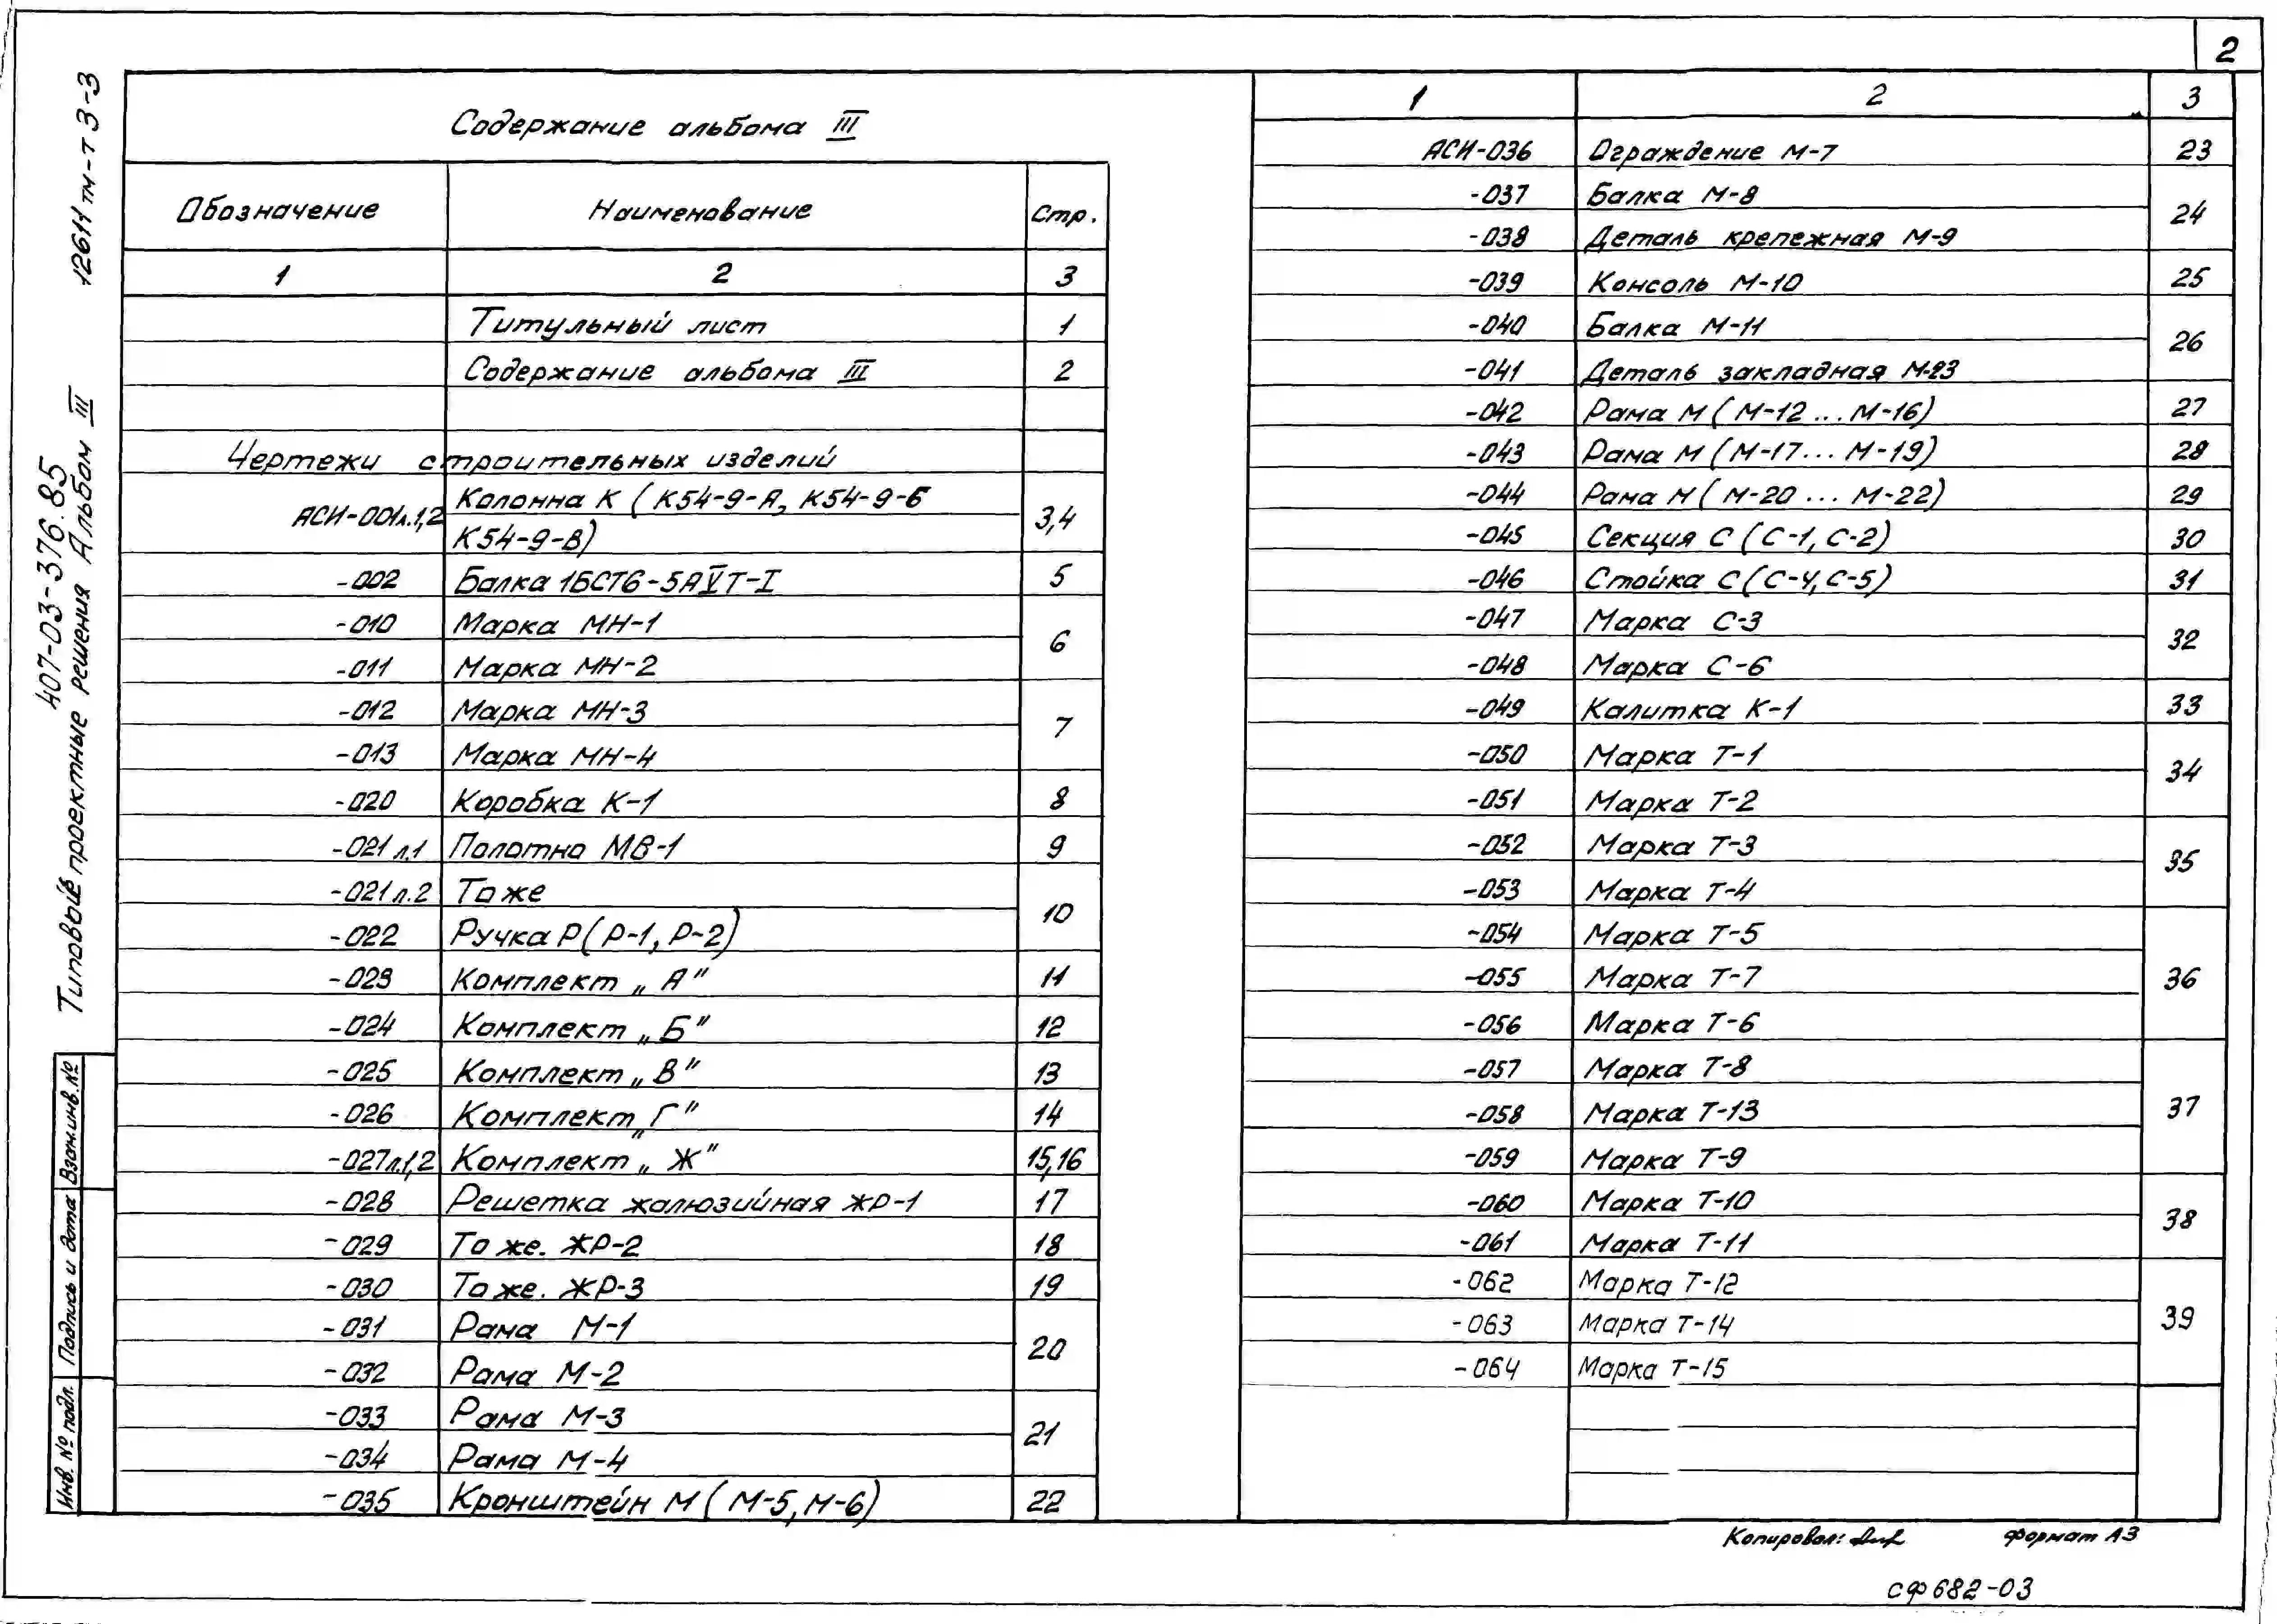 2
12611тм-т3-3
407-03-376.85
Типовые проектные решения Альбом III
Содержание альбома III
Обозначение Наименование Стр.
1 2 3
Титульный лист 1
Содержание альбома III 2
Чертежи строительных изделий
АСИ-001л.1,2 Колонна К (К54-9-А, К54-9-Б К54-9-В) 3,4
-002 Балка 1БСТ6-5АVТ-I 5
-010 Марка МН-1 6
-011 Марка МН-2
-012 Марка МН-3 7
-013 Марка МН-4
-020 Коробка К-1 8
-021 л.1 Полотно МВ-1 9
-021 л.2 То же 10
-022 Ручка Р(Р-1, Р-2)
-023 Комплект „А" 11
-024 Комплект „Б" 12
-025 Комплект „В" 13
-026 Комплект „Г" 14
-027л.1,2 Комплект „Ж" 15,16
-028 Решетка жалюзийная ЖР-1 17
-029 То же. ЖР-2 18
-030 То же. ЖР-3 19
-031 Рама М-1 20
-032 Рама М-2
-033 Рама М-3 21
-034 Рама М-4
-035 Кронштейн М (М-5, М-6) 22
1 2 3
АСИ-036 Ограждение М-7 23
-037 Балка М-8 24
-038 Деталь крепежная М-9
-039 Консоль М-10 25
-040 Балка М-11 26
-041 Деталь закладная М-23
-042 Рама М (М-12...М-16) 27
-043 Рама М (М-17...М-19) 28
-044 Рама М (М-20...М-22) 29
-045 Секция С (С-1, С-2) 30
-046 Стойка С (С-4, С-5) 31
-047 Марка С-3 32
-048 Марка С-6
-049 Калитка К-1 33
-050 Марка Т-1 34
-051 Марка Т-2
-052 Марка Т-3 35
-053 Марка Т-4
-054 Марка Т-5 36
-055 Марка Т-7
-056 Марка Т-6
-057 Марка Т-8 37
-058 Марка Т-13
-059 Марка Т-9
-060 Марка Т-10 38
-061 Марка Т-11
-062 Марка Т-12 39
-063 Марка Т-14
-064 Марка Т-15
Инв. № подл. Подпись и дата Взам.инв.№
Копировал: формат А3
сф682-03